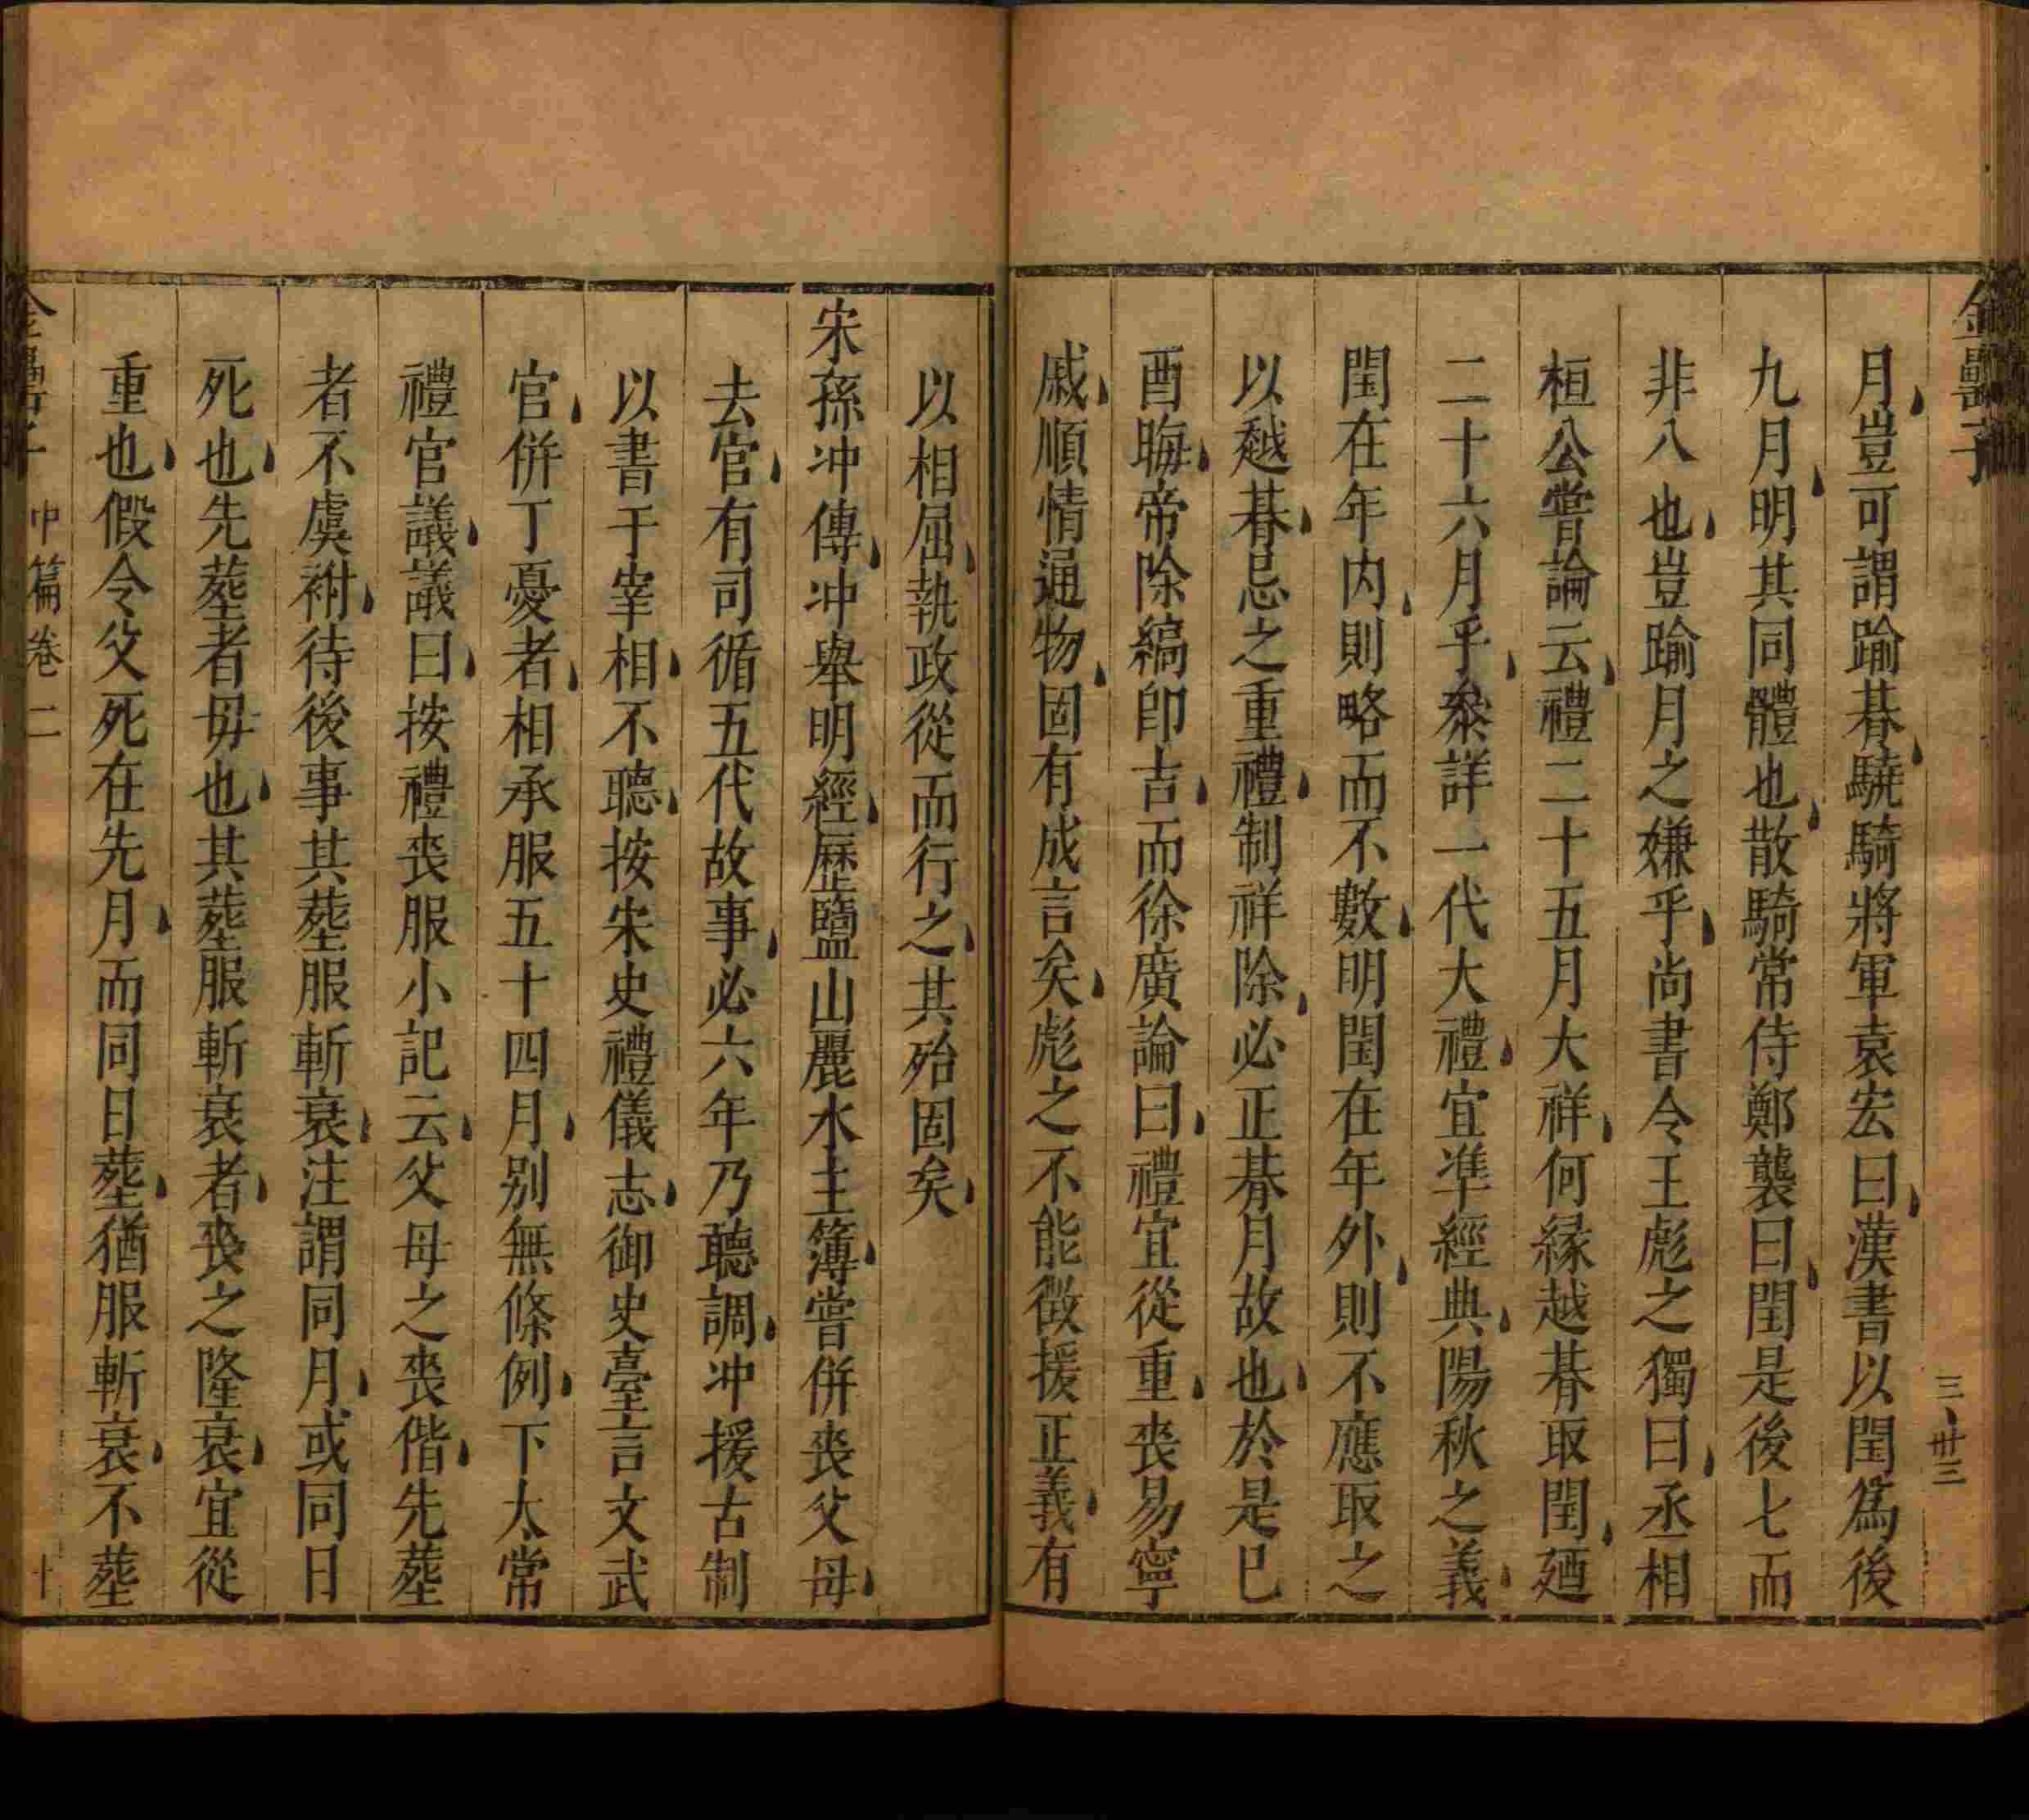 金罍子
三、卅三
月豈可謂踰朞驍騎將軍袁宏曰漢書以閏爲後
九月明其同體也散騎常侍鄭襲曰閏是後七而
非八也豈踰月之嫌乎尚書令王彪之獨曰丞相
桓公嘗論云禮二十五月大祥何縁越朞取閏廼
二十六月乎叅詳一代大禮宜準經典陽秋之義
閏在年内則略而不數明閏在年外則不應取之
以越朞忌之重禮制祥除必正朞月故也於是巳
酉晦帝除縞卽吉而徐廣論曰禮宜從重喪易寧
戚順情通物固有成言矣彪之不能徵援正義有
以相屈執政從而行之其殆固矣
宋孫冲傳冲舉明經歷鹽山麗水主簿嘗併喪父母
去官有司循五代故事必六年乃聽調冲援古制
以書于宰相不聽按宋史禮儀志御史臺言文武
官併丁憂者相承服五十四月别無條例下太常
禮官議議曰按禮喪服小記云父母之喪偕先葬
者不虞祔待後事其葬服斬衰注謂同月或同日
死也先葬者毋也其葬服斬衰者喪之隆衰宜從
重也假令父死在先月而同日葬猶服斬衰不葬
金罍子 中篇卷二 十